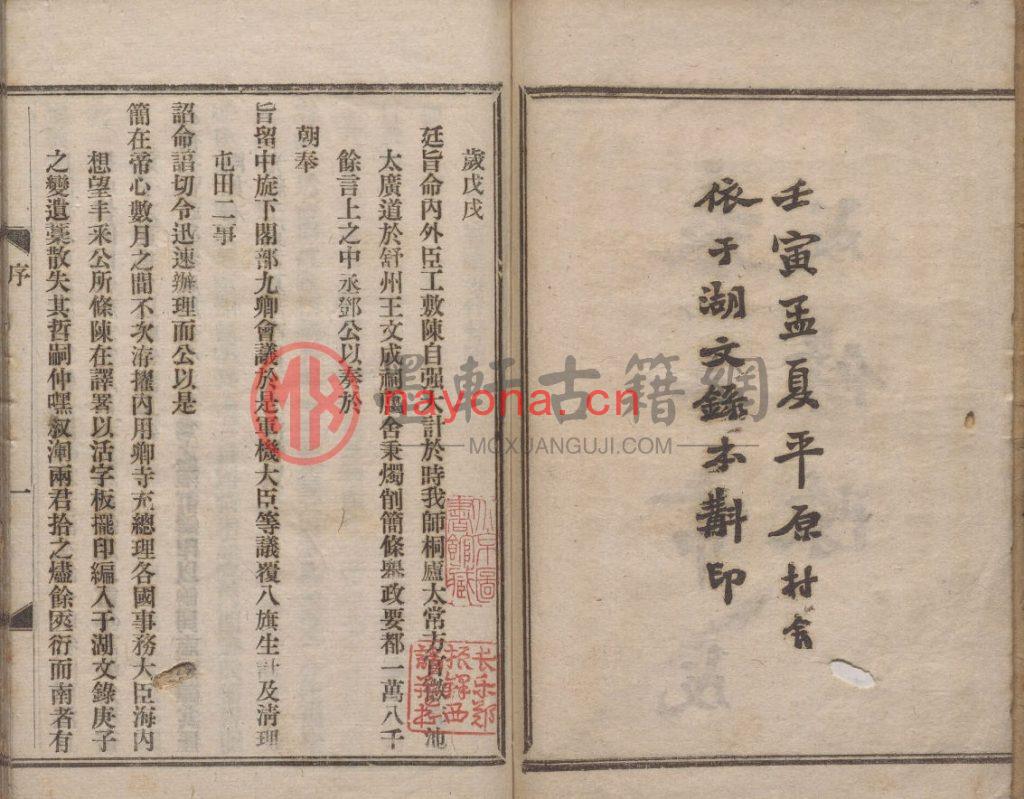 壬寅孟夏平原村舍
依于湖文錄本斠印
歲戊戌
廷旨命內外臣工敷陳自强大計於時我師桐廬太常方官徽池
太廣道於舒州王文成祠僑舍秉燭削簡條舉政要都一萬八千
餘言上之中丞鄧公以奏於
朝奉
旨留中旋下閣部九卿會議於是軍機大臣等議覆八旗生計及清理
屯田二事
詔命諳切令迅速辦理而公以是
簡在帝心數月之間不次洊擢內用卿寺充總理各國事務大臣海內
想望丰采公所條陳在譯署以活字板擺印編入于湖文錄庚子
之變遺藁散失其哲嗣仲嘿叙澗兩君拾之燼餘匧衍而南者有
序
一
北京圖
書館藏
長樂鄭
振鐸西
諦藏書
墨軒古籍網
nayona.cn
MOXUANGUJI.COM